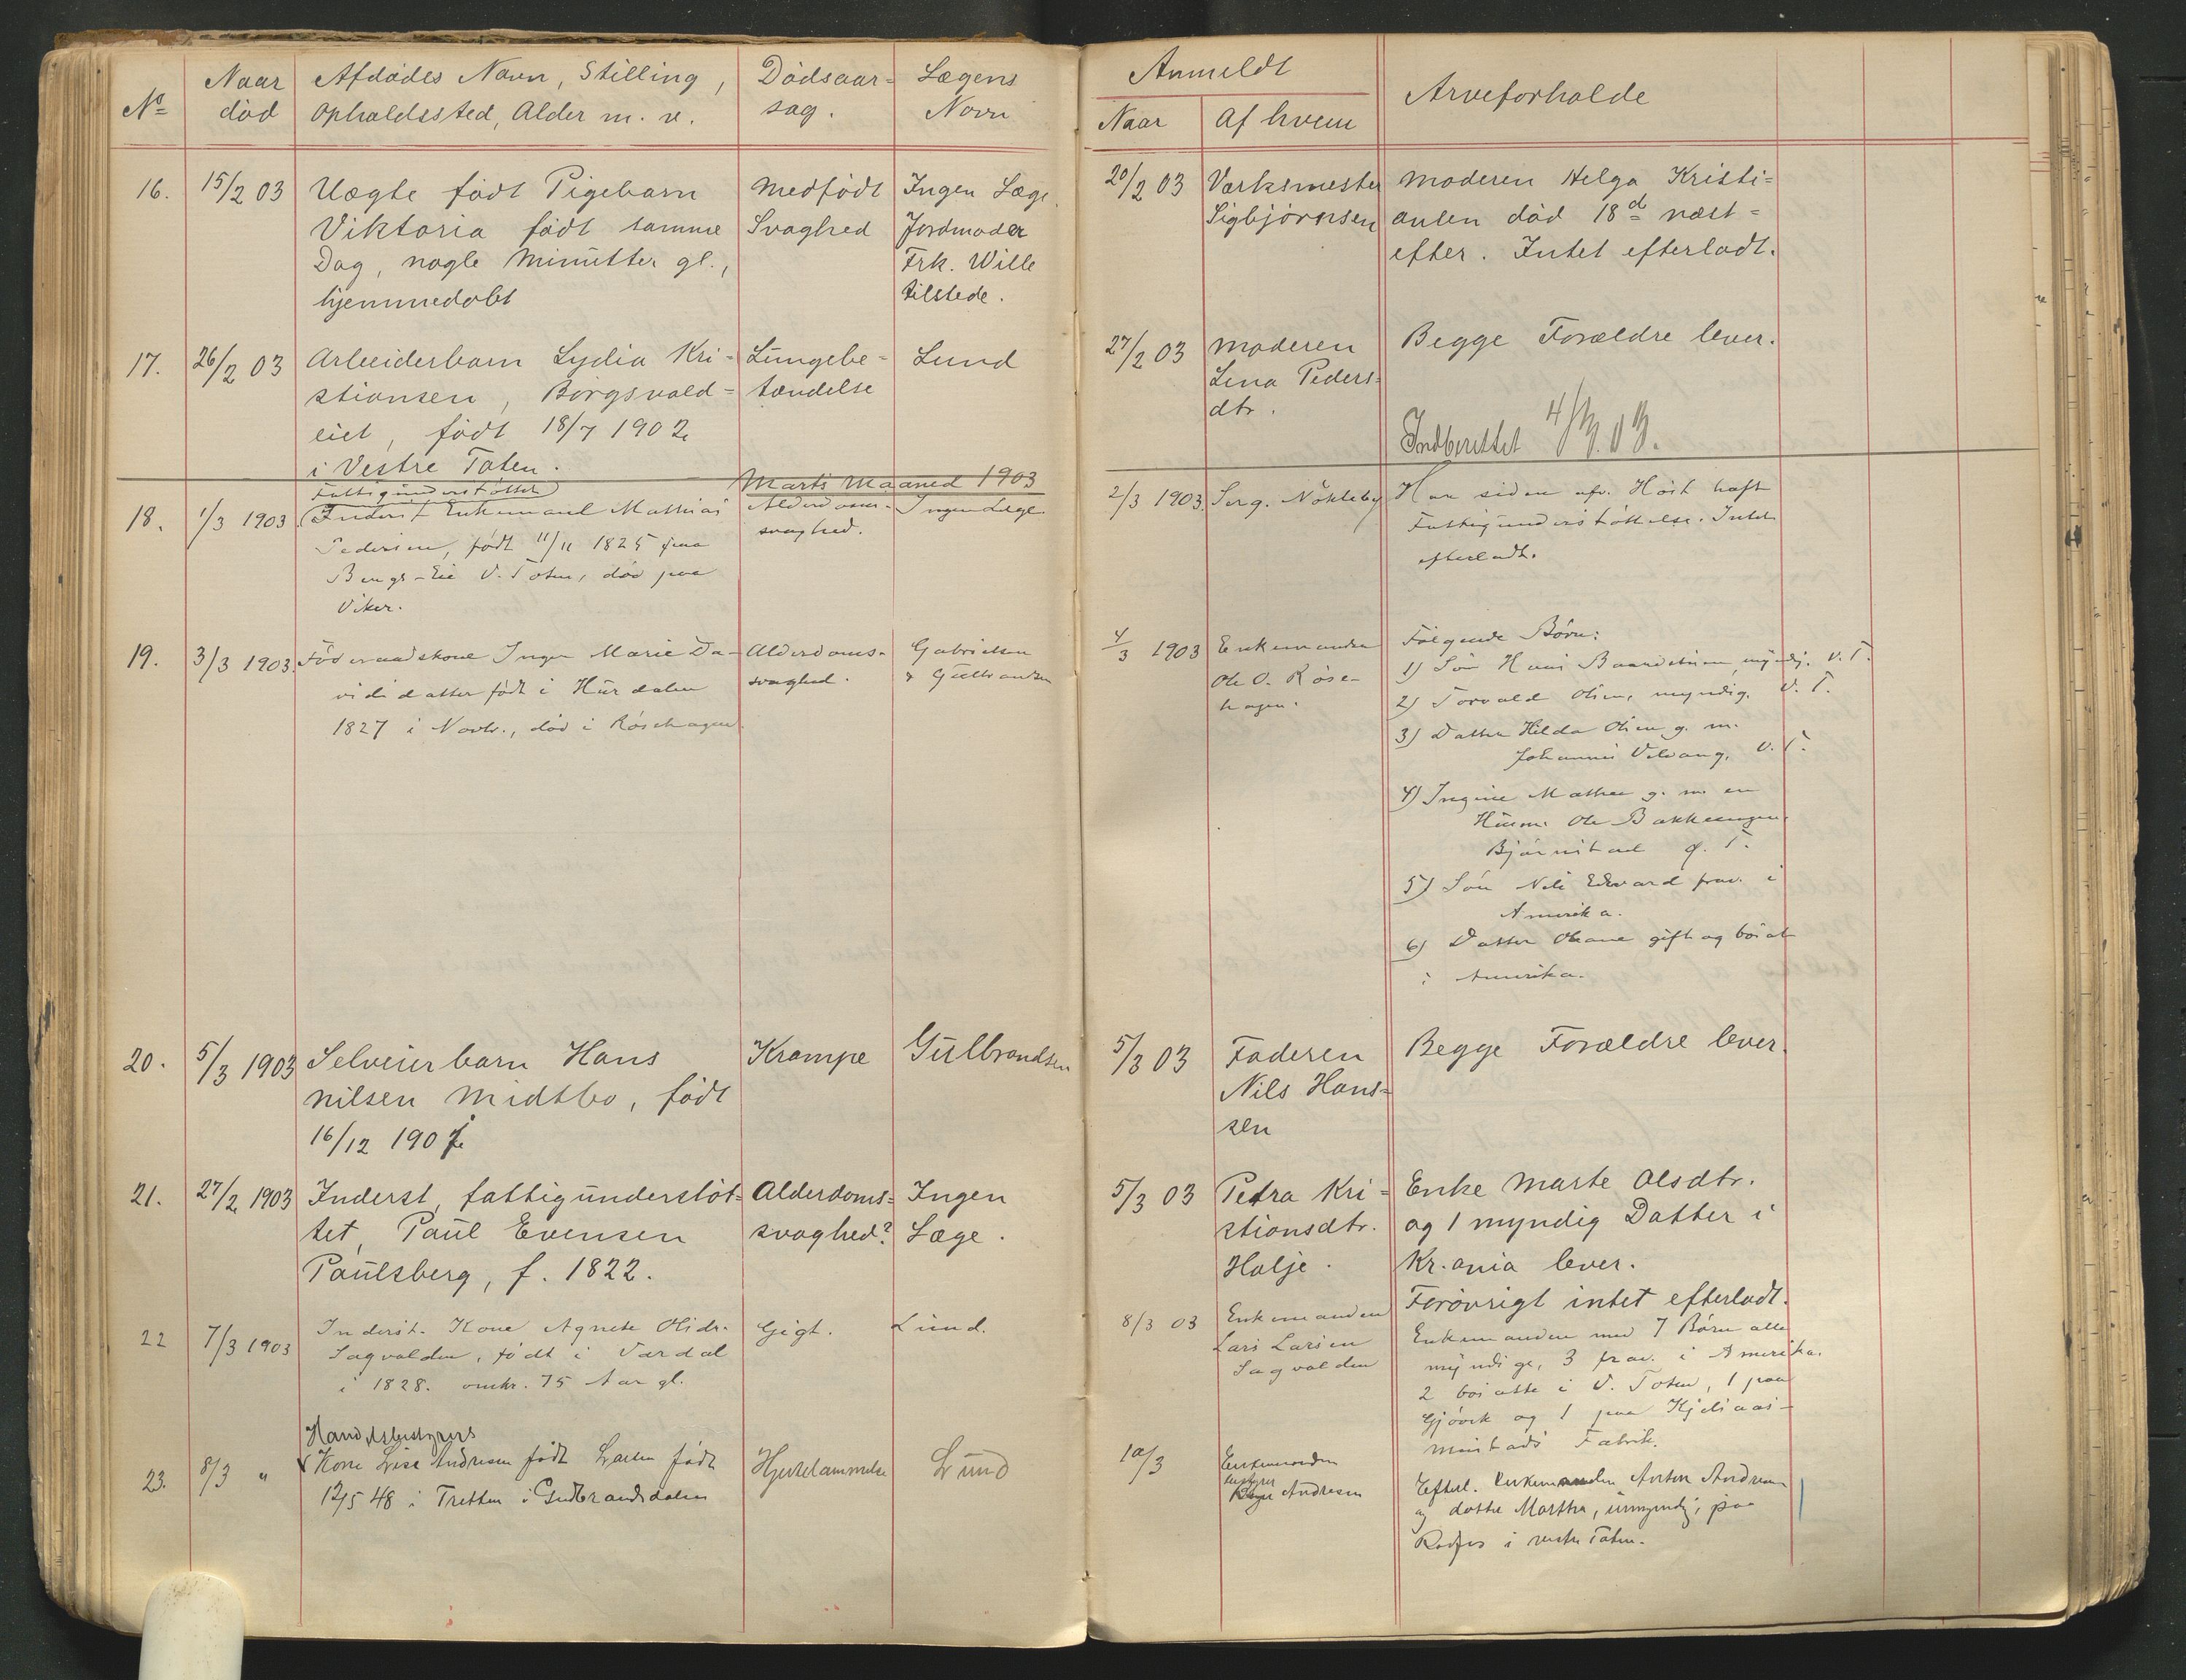 No
Naar
død
Afdødes Navn, Stilling,
Opholdssted, Alder m. v.
Dødsaar-
sag.
Lægens
Navn
Anmeldt
Naar
Af hvem
Arveforholde
16.
15/2 03
Uægte født Pigebarn
Viktoria født samme
Dag, nogle Minutter gl.,
hjemmedøbt
Medfødt
Svaghed
Ingen Læge.
Jordmoder
Frk. Wille
tilstede.
20/2 03
Værksmester
Sigbjørnsen
Moderen Helga Kristi=
ansen død 18d næst=
efter. Intet efterladt.
17.
26/2 03
Arbeiderbarn Lydia Kri-
stiansen, Borgsvald=
eiet, født 18/7 1902
i Vestre Toten.
Lungebe-
tændelse
Lund
27/2 03
Moderen
Lina Peders=
dtr.
Begge Forældre lever.
Indberettet 4/3. 03.
Marts Maaned 1903
18.
1/3 1903
Fattigunderstøttet
Inderst Enkemand Mathias
Pedersen, født 11/11 1825 paa
Bergs-Eie V. Toten, død paa
Viker.
Alderdoms-
svaghed.
Ingen Læge
2/3 1903
Serg. Nøkleby
Han siden afv. Høst haft
Fattigunderstøttelse. Intet
efterladt.
19.
3/3 1903.
Føderaadskone Inger Marie Da-
vidsdatter født i Hurdalen
1827 i Novbr., død i Røsehagen
Alderdoms-
svaghed.
Gabrielsen
& Gulbrandsen
4/3 1903
Enkemanden
Ole O. Røse-
hagen.
Følgende Børn:
1) Søn Hans myndig. V. T.
2) Torvald Olsen, myndig. V. T.
3) Datter Hilda Olsen g. m.
Johannes V. T.
4) Ingine Mathea g. m. en
Husm. Ole Bakkeengen
Bjørnstad Ø. T.
5) Søn Nils Edvard frav. i
Amerika.
6) Datter Oleane gift og bosat
i Amerika.
20.
5/3 1903
Selveierbarn Hans
Nilsen Midtbo, født
16/12 190
Krampe
Gulbrandsen
5/3 03
Faderen
Nils Hans=
sen
Begge Forældre lever.
21.
27/2 1903
Inderst, fattigunderstøt=
tet, Paul Evensen
Paulsberg, f. 1822.
Alderdoms=
svaghed?
Ingen
Læge.
5/3 03
Petra Kri=
stiansdtr.
Halje.
Enke Marte Olsdtr.
og 1 myndig Datter i
Kr.ania lever.
Forøvrigt intet efterladt.
22
7/3 1903
Inderst. Kone Agnete Olsdr.
Sagvolden, født i Vardal
i 1828. omkr. 75 Aar gl.
Gigt.
Lund.
8/3 03
Enkemanden
Lars Larsen
Sagvolden
Enkemanden med 7 Børn alle
myndige, 3 frav. i Amerika.
2 bosatte i V. Toten, 1 paa
Gjøvik og 1 paa
Fabrik.
23.
8/3 "
Handelsbestyrers
Kone Lise Andresen født Larsen født
12/5 48 i Tretten i Gudbrandsdalen
Hjertelammelse
Lund
10/3
Enkemanden
bestyrer
Andresen
Efterl. Enkemanden Anton Andresen
og datter Martha, umyndig, paa
Raufos i vestre Toten.